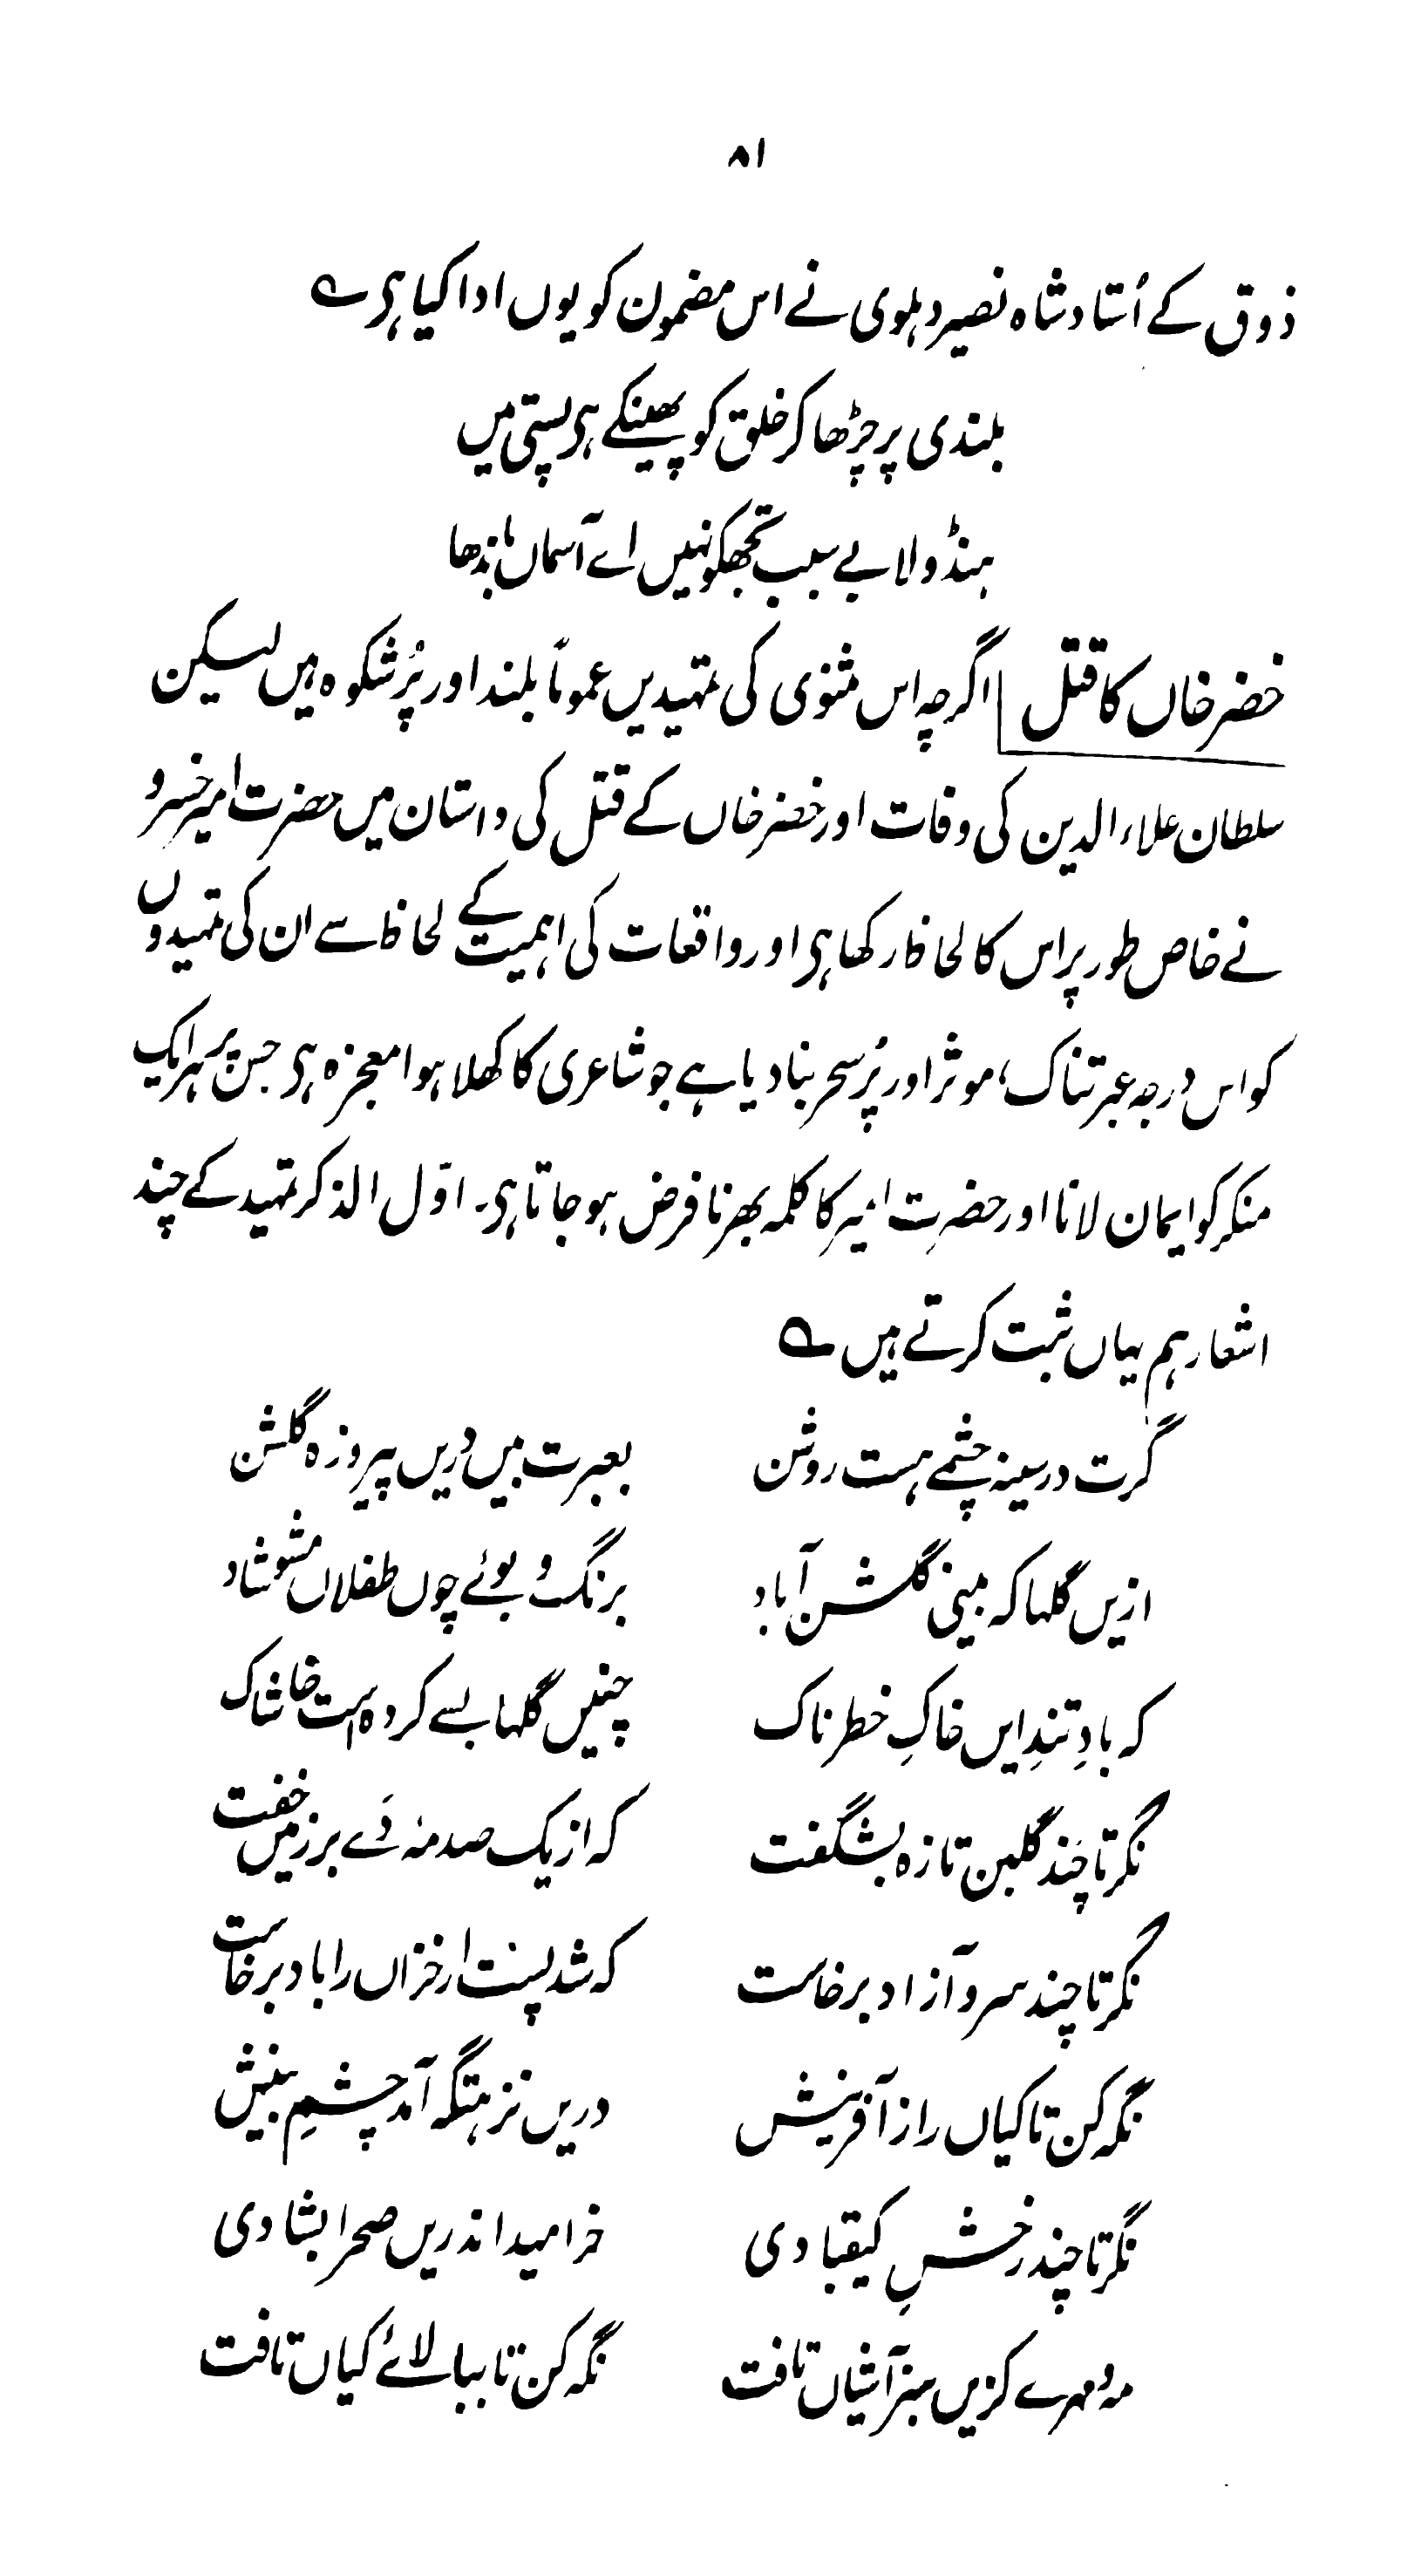 ۸۱
ذوق کے اُستاد شاہ نصیر دہلوی نے اس مضمون کو یوں ادا کیا ہی ؎
بلندی پر چڑھا کر خلق کو پھینکے ہی پستی میں
ہنڈولا بے سبب تجھکو نہیں اے آسماں باندھا
خضر خاں کا قتل اگرچہ اس مثنوی کی تمہیدیں عموماً بلند اور پُرشکوہ ہیں لیکن
سلطان علاءالدین کی وفات اور خضر خاں کے قتل کی داستان میں حضرت امیر خسرو
نے خاص طور پر اس کا لحاظ رکھا ہی اور واقعات کی اہمیت کے لحاظ سے ان کی تمہیدوں
کو اس درجہ عبرتناک، موثر اور پُرسحر بنا دیا ہے جو شاعری کا کھلا ہوا معجزہ ہی جس پر ہر ایک
منکر کو ایمان لانا اور حضرت امیر کا کلمہ بھرنا فرض ہو جاتا ہی۔ اوّل الذکر تمہید کے چند
اشعار ہم یہاں ثبت کرتے ہیں ؎
گرت در سینہ چشمے ہست روشن بعبرت بیں دریں پیروزہ گلشن
ازیں گلہا کہ بینی گلشن آباد برنگ و بوئے چوں طفلاں مشو شاد
کہ بادِ تندِ ایں خاکِ خطرناک چنیں گلہا بسے کردہ است خاشاک
نگر تا چند گلبن تازہ بشگفت کہ از یک صدمۂ دَے بر زمیں خفت
نگر تا چند سرو آزاد برخاست کہ شد پست ار خزاں را باد برخاست
نگہ کن تا کیاں را ز آفرینش دریں نزہتگہ آمد چشمِ بینش
نگر تا چند رخشِ کیقبادی خرامید اندریں صحرا بشادی
مہ و مہرے کزیں سبز آشیاں تافت نگہ کن تا ببالائے کیاں تافت